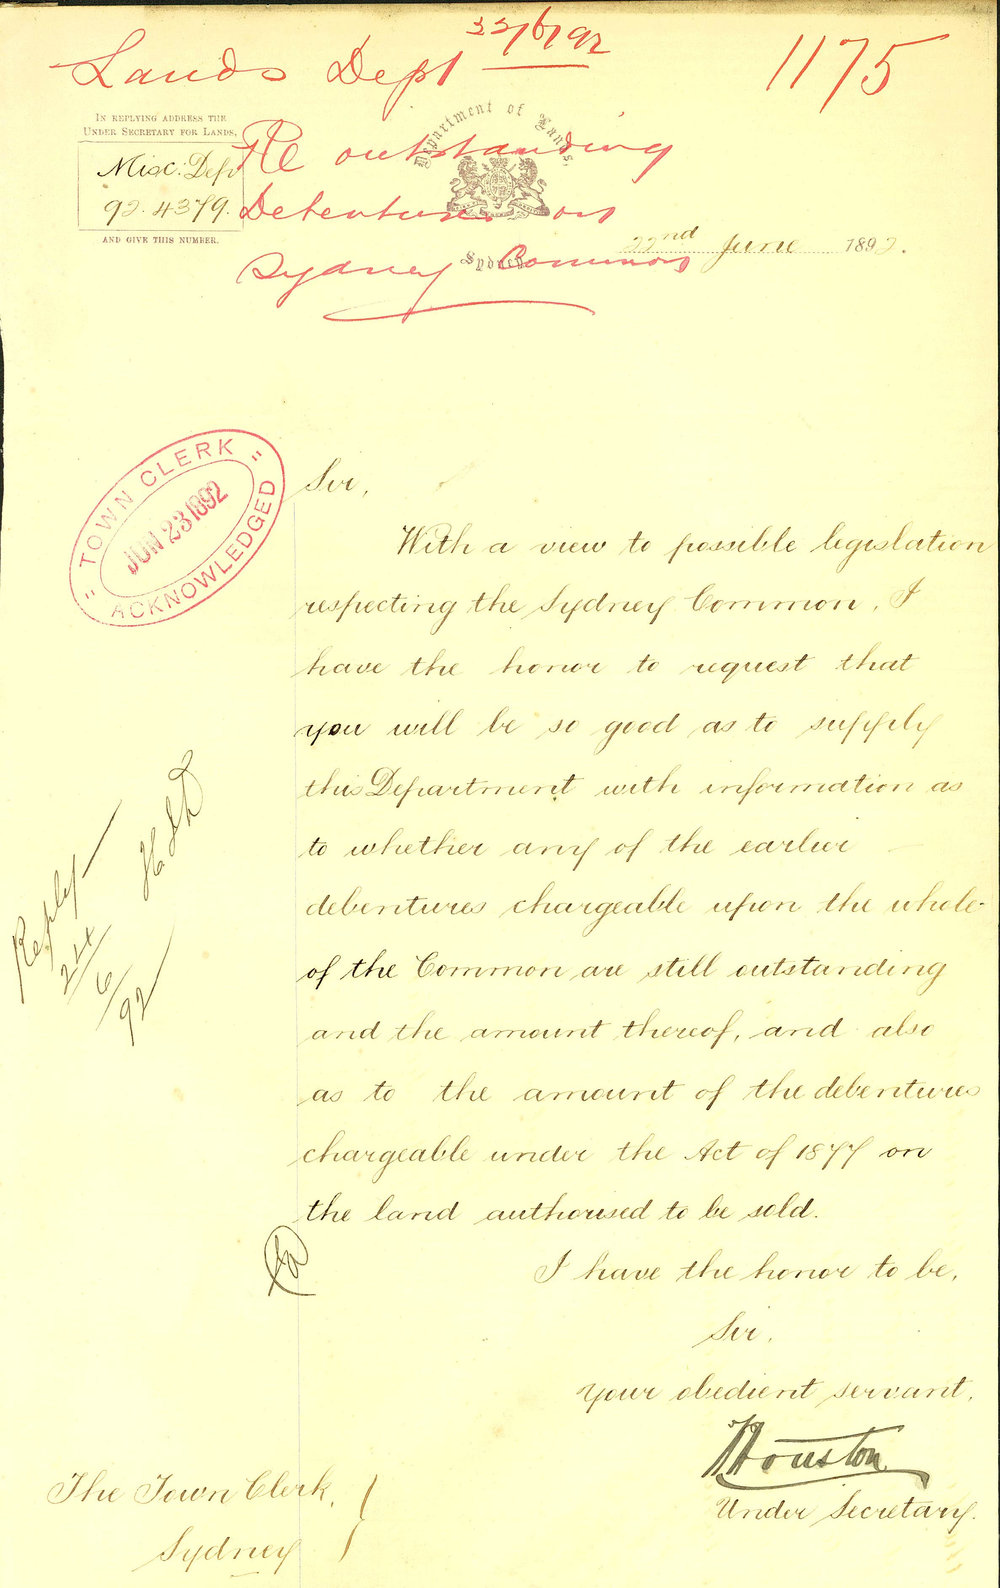 22/6/92
Lands Dept
1175
IN REPLYING ADDRESS THE
UNDER SECRETARY FOR LANDS,
Misc: Dep
92. 4379.
AND GIVE THIS NUMBER.
Department of Lands,
Re outstanding
Debentures on
Sydney Common
Sydney
22nd June 1892.
"TOWN CLERK"
JUN 23 1892
ACKNOWLEDGED
Sir,
With a view to possible legislation
respecting the Sydney Common, I
have the honor to request that
you will be so good as to supply
this Department with information as
to whether any of the earlier
debentures chargeable upon the whole
of the Common are still outstanding
and the amount thereof, and also
as to the amount of the debentures
chargeable under the Act of 1877 on
the land authorised to be sold.
I have the honor to be,
Sir,
Your obedient servant,
Houston
Under Secretary.
The Town Clerk,
Sydney
Reply
24/6/92